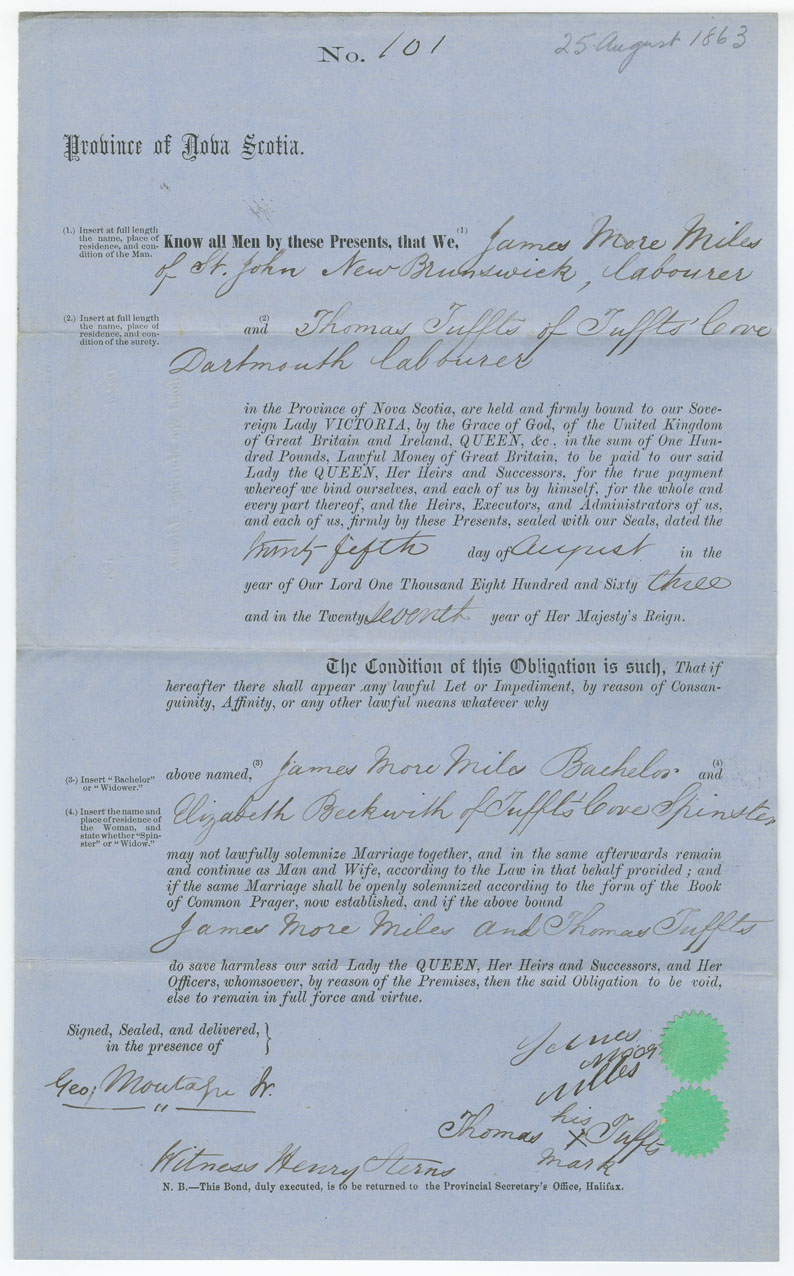 No. 101
25 August 1863
Province of Nova Scotia.
(1.) Insert at full length
the name, place of
residence, and con-
dition of the Man.
Know all Men by these Presents, that We, (1) James More Miles
of St. John New Brunswick, labourer
(2.) Insert at full length
the name, place of
residence, and con-
dition of the surety.
and (2) Thomas Tuffts of Tuffts' Cove
Dartmouth labourer
in the Province of Nova Scotia, are held and firmly bound to our Sove-
reign Lady VICTORIA, by the Grace of God, of the United Kingdom
of Great Britain and Ireland, QUEEN, &c, in the sum of One Hun-
dred Pounds, Lawful Money of Great Britain, to be paid to our said
Lady the QUEEN, Her Heirs and Successors, for the true payment
whereof we bind ourselves, and each of us by himself, for the whole and
every part thereof, and the Heirs, Executors, and Administrators of us,
and each of us, firmly by these Presents, sealed with our Seals, dated the
twenty fifth day of August in the
year of Our Lord One Thousand Eight Hundred and Sixty three
and in the Twenty seventh year of Her Majesty's Reign.
The Condition of this Obligation is such, That if
hereafter there shall appear any lawful Let or Impediment, by reason of Consan-
guinity, Affinity, or any other lawful means whatever why
(3.) Insert "Bachelor"
or "Widower."
above named, (3) James More Miles Bachelor and (4)
(4.) Insert the name and
place of residence of
the Woman, and
state whether "Spin-
ster" or "Widow."
Elizabeth Beckwith of Tuffts' Cove Spinster
may not lawfully solemnize Marriage together, and in the same afterwards remain
and continue as Man and Wife, according to the Law in that behalf provided; and
if the same Marriage shall be openly solemnized according to the form of the Book
of Common Prager, now established, and if the above bound
James More Miles and Thomas Tuffts
do save harmless our said Lady the QUEEN, Her Heirs and Successors, and Her
Officers, whomsoever, by reason of the Premises, then the said Obligation to be void,
else to remain in full force and virtue.
Signed, Sealed, and delivered,
in the presence of
James
Moor
Miles
Geo; Moutagu Jr.
his
Thomas X Tuffts
mark
Witness Henry Sterns
N. B.—This Bond, duly executed, is to be returned to the Provincial Secretary's Office, Halifax.